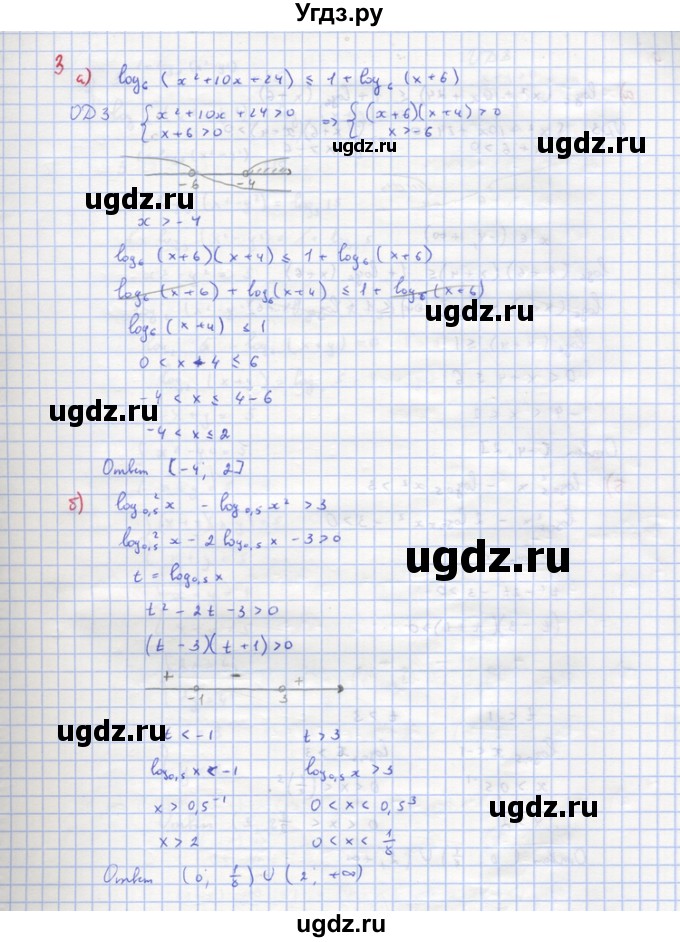 Угдз.ру
3 а) log₆ (x² + 10x + 24) ≤ 1 + log₆ (x + 6)
ОДЗ { x² + 10x + 24 > 0 ⇒ { (x + 6)(x + 4) > 0
x + 6 > 0 x > -6
-6 -4
ugdz.ru
ugdz.ru
x > -4
log₆ (x + 6)(x + 4) ≤ 1 + log₆ (x + 6)
log₆ (x + 6) + log₆ (x + 4) ≤ 1 + log₆ (x + 6)
ugdz.ru
log₆ (x + 4) ≤ 1
0 < x + 4 ≤ 6
ugdz.ru
-4 < x ≤ 4 - 6
-4 < x ≤ 2
Ответ [-4; 2]
б) log²₀,₅ x - log₀,₅ x² > 3
log²₀,₅ x - 2 log₀,₅ x - 3 > 0
ugdz.ru
t = log₀,₅ x
t² - 2t - 3 > 0
(t - 3)(t + 1) > 0
+ - +
-1 3
ugdz.ru
t < -1 t > 3
log₀,₅ x < -1 log₀,₅ x > 3
x > 0,5⁻¹ 0 < x < 0,5³
ugdz.ru
x > 2 0 < x < 1/8
Ответ (0; 1/8) ∪ (2; +∞)
ugdz.ru